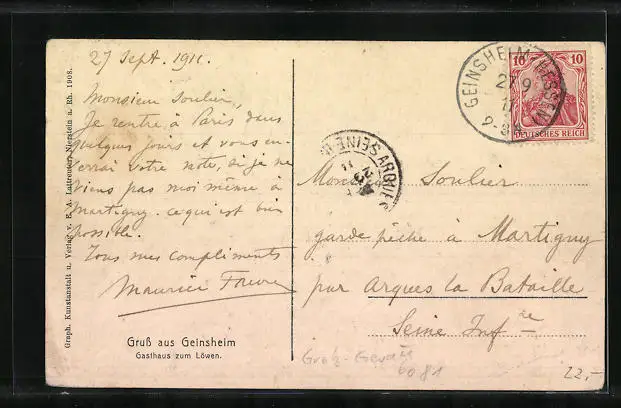 27 Sept. 1911.
Monsieur Soulier,
Je rentre à Paris dans
quelques jours et vous en-
verrai votre note, si je ne
viens pas moi même à
Martigny. ce qui est bien
possible.
Tous mes compliments
Maurice Favre
Gruß aus Geinsheim
Gasthaus zum Löwen.
Graph. Kunstanstalt u. Verlag v. E. A. Nierstein a. Rh. 1908.
GEINSHEIM HESSEN
27 9
11
10 10
DEUTSCHES REICH
ARQUES SEINE
Soulier
garde pêche à Martigny
par Arques la Bataille
Seine Infre
Groß-Gerau
6081
22,-